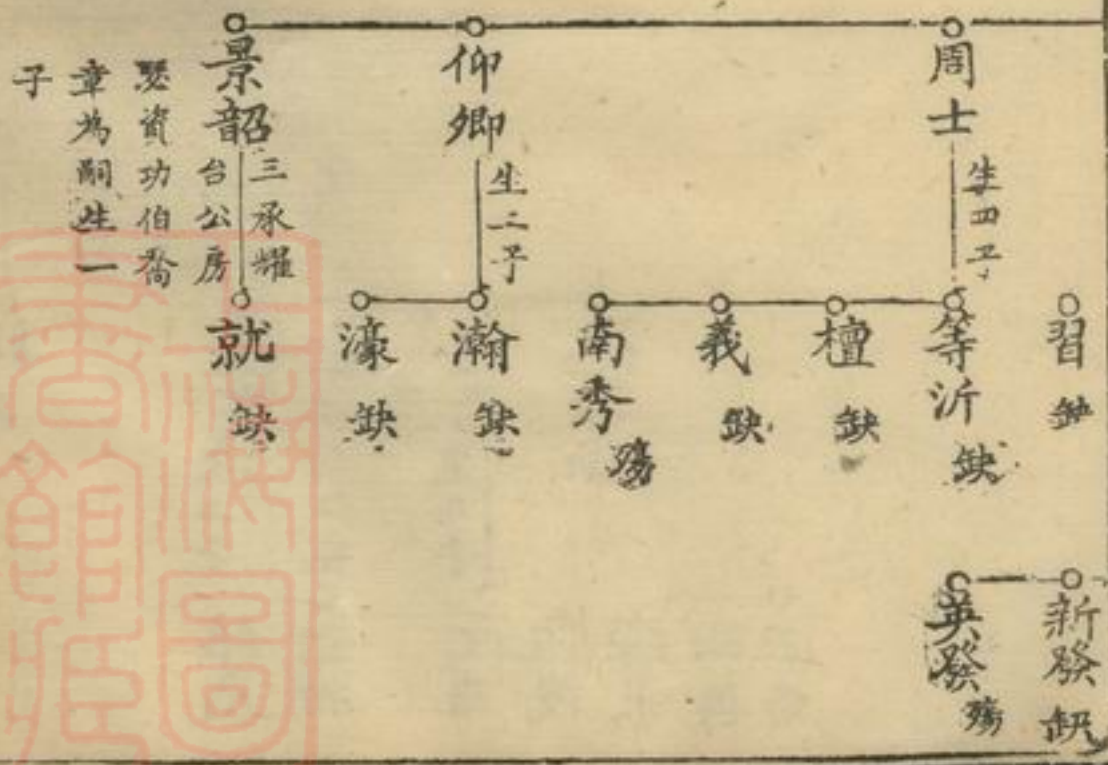 周士
生四子
仰卿
生二子
景韶
三承耀
台公房
資功伯喬
章為嗣生一
子
習 缺
等沂 缺
檀 缺
義 缺
南秀 殤
瀚 缺
濠 缺
就 缺
新發 缺
英發 殤
上海圖
書館藏